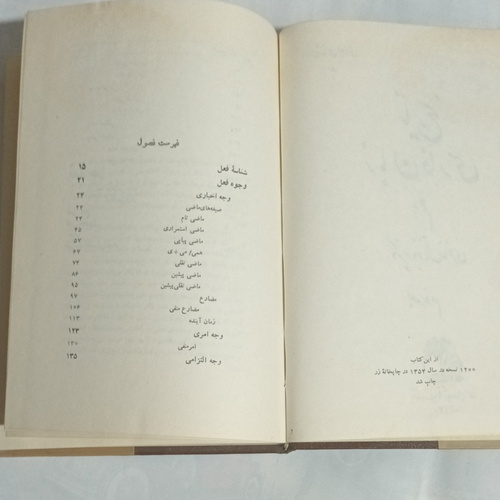 از این کتاب
۱۲۰۰ نسخه در سال ۱۳۵۴ در چاپخانهٔ زر
چاپ شد
فهرست فصول
شناسهٔ فعل ۱۵
وجوه فعل ۲۱
وجه اخباری ۲۳
صیغه‌های ماضی ۲۳
ماضی تام ۲۳
ماضی استمراری ۴۵
ماضی پیاپی ۵۷
همی/ می + ی ۶۳
ماضی نقلی ۷۳
ماضی پیشین ۸۶
ماضی نقلی پیشین ۹۵
مضارع ۹۷
مضارع منفی ۱۰۴
زمان آینده ۱۱۳
وجه امری ۱۲۳
امرمنفی ۱۳۰
وجه التزامی ۱۳۵